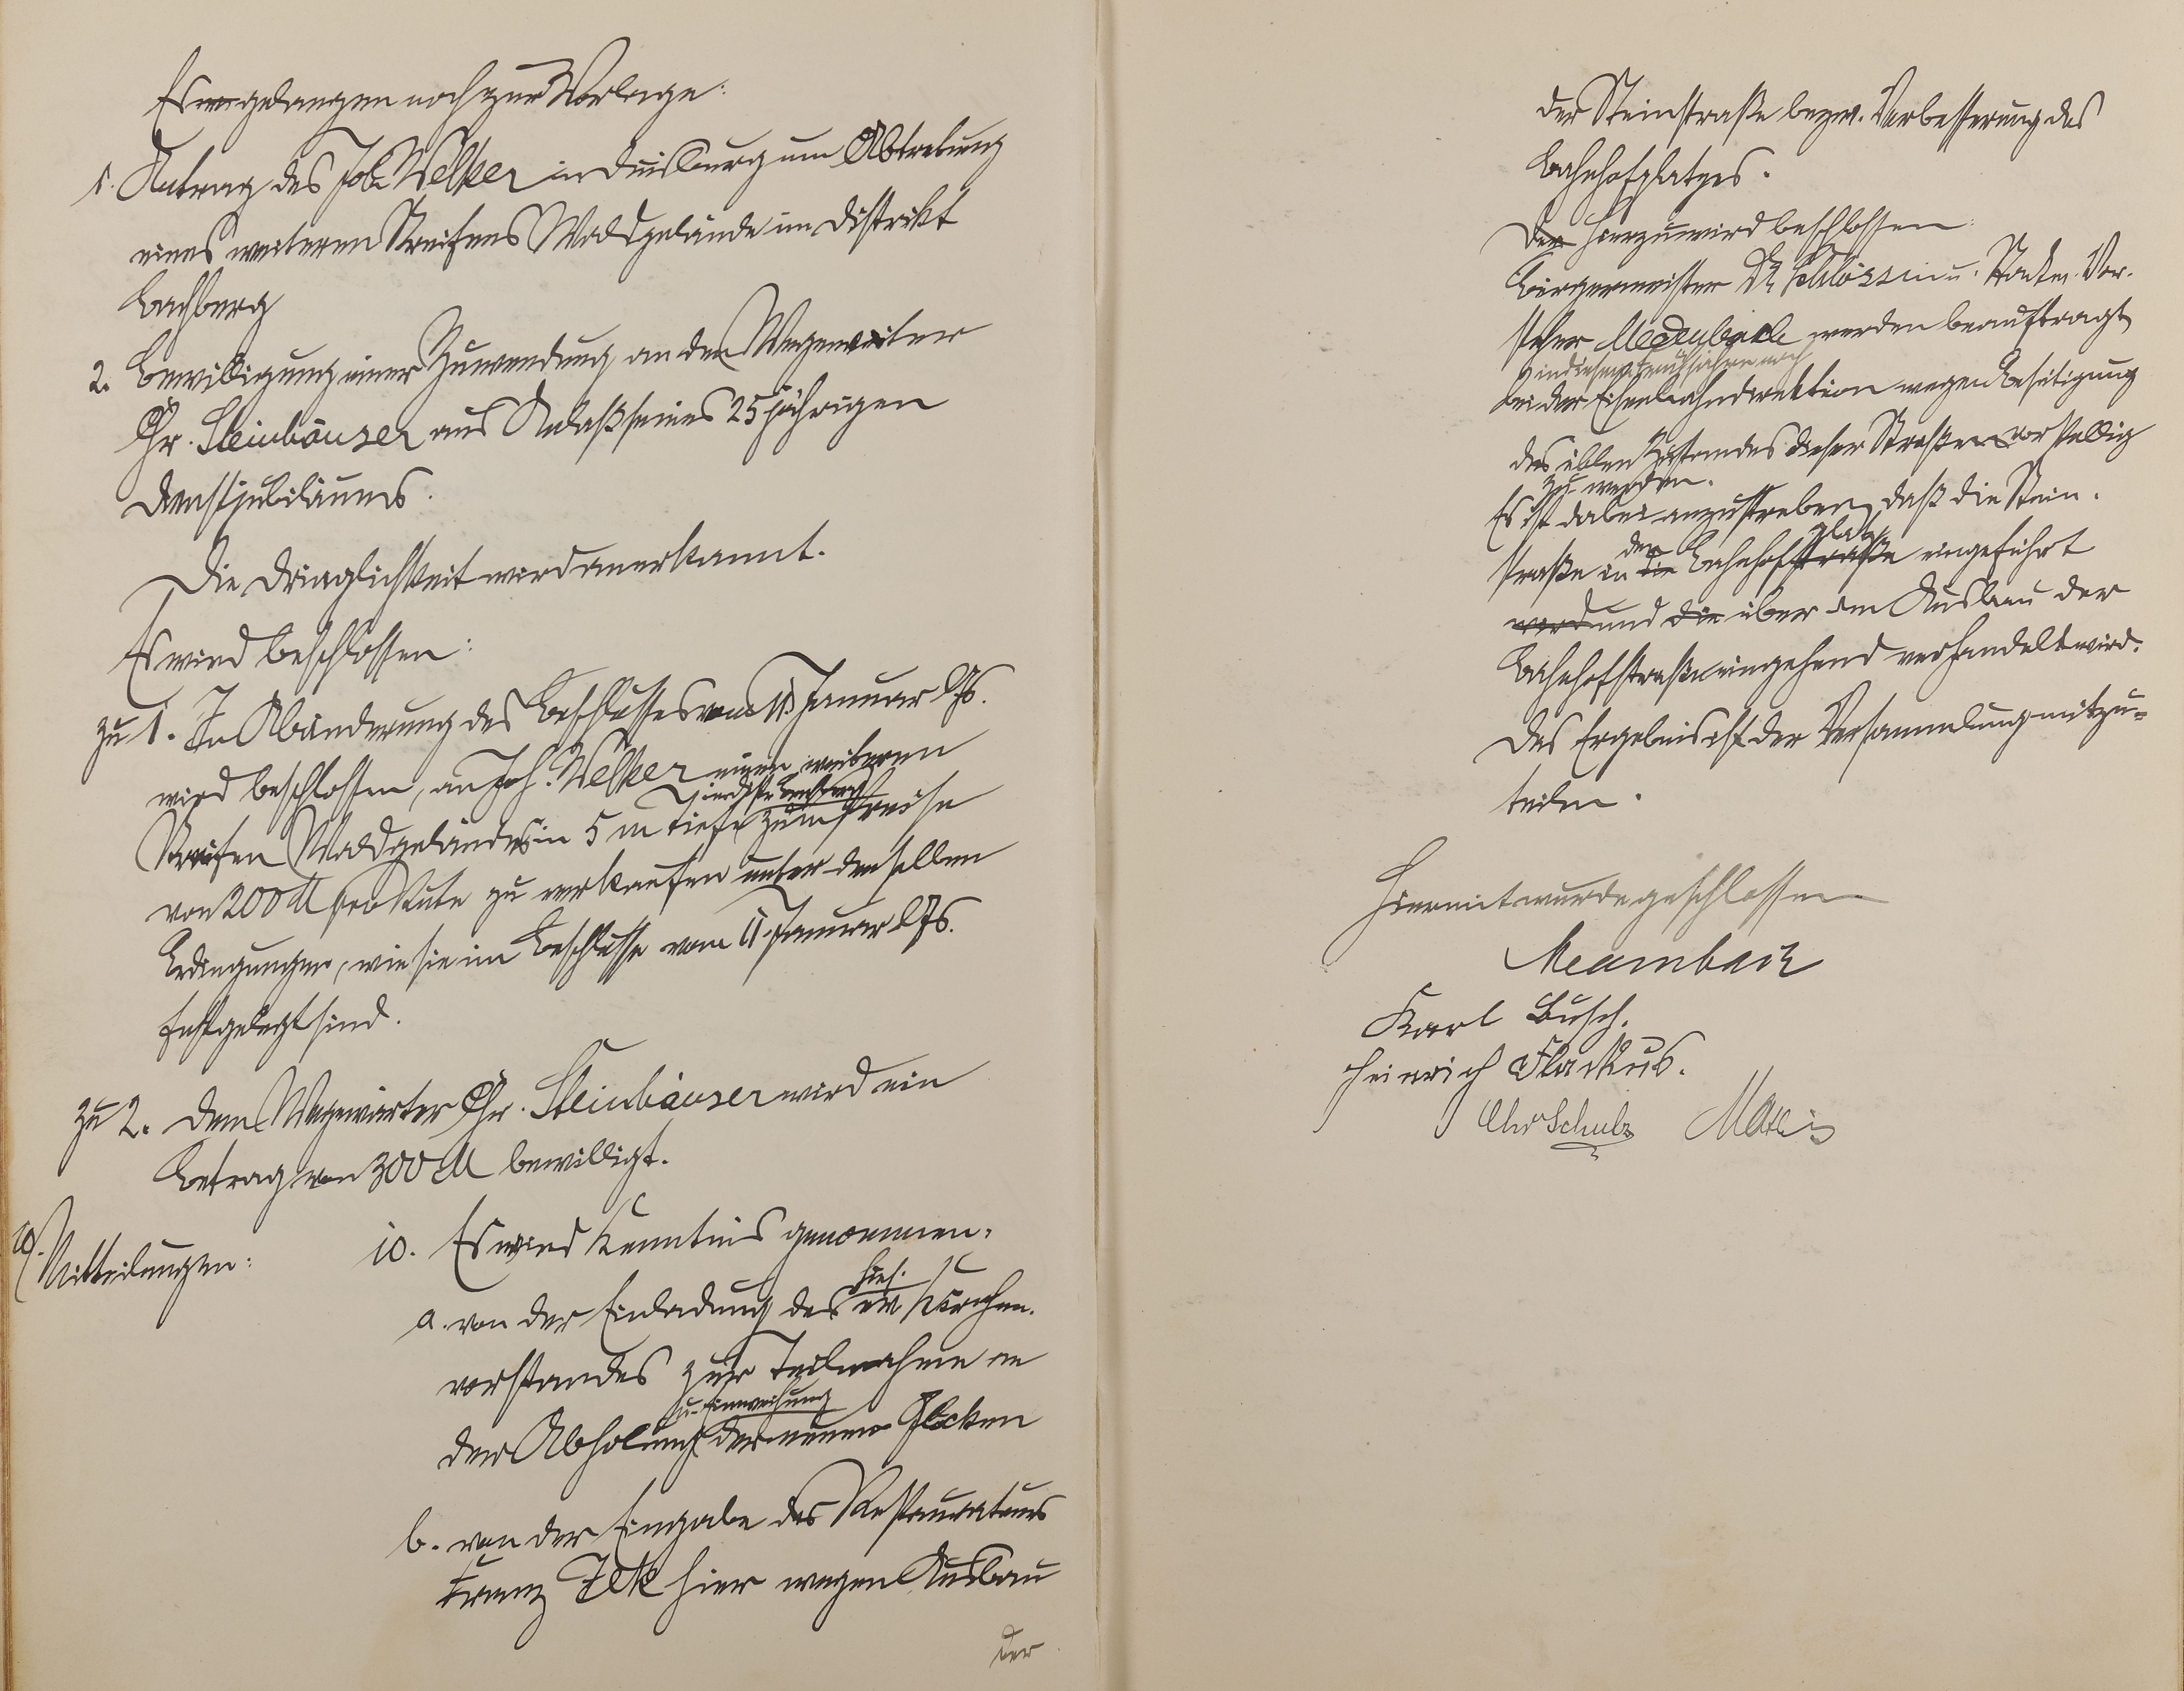 Es gelangen noch zur Vorlage:
1. Antrag des Joh. Welker in Duisburg um Abtretung
eines weiteren Streifens Waldgelände im Distrikt
Lachberg
2. Bewilligung einer Zuwendung an den Wegewärter
Chr. Steinhäuser aus Anlaß seines 25 jährigen
Dienstjubiläums.
Die Dringlichkeit wird anerkannt.
Es wird beschlossen:
zu 1. In Abänderung des Beschlusses vom 11. Januar ds. Js.
wird beschlossen, an Joh. Welker einen weiteren
im Distr. Lachberg
Streifen Waldgeländes in 5 m Tiefe zum Preise
von 200 M pro Rute zu verkaufen unter denselben
Bedingungen, wie sie im Beschlusse vom 11. Januar ds. Js.
festgelegt sind.
zu 2. Dem Wegewärter Chr. Steinhäuser wird ein
Betrag von 300 M bewilligt.
10. Mitteilungen:
10. Es wird Kenntnis genommen:
hies.
a. von der Einladung des ev. Kirchen-
vorstandes zur Teilnahme an
u. Einweihung
der Abholung der neuen Glocken
b. von der Eingabe des Restaurateurs
Franz Ilk hier wegen Ausbau
der
der Steinstraße bezw. Verbesserung des
Bahnhofplatzes.
Der Hierzu wird beschlossen:
Bürgermeister Dr. Schlosser u. Stadtv. Vor-
steher werden beauftragt
bei der Eisenbahndirektion wegen Beseitigung
des üblen Zustandes dieser Straßen vorstellig
zu werden.
Es ist dabei anzustreben, daß die Stein-
den platz
straße in die Bahnhofstraße eingeführt
wird und die über den Ausbau der
Bahnhofstraße eingehend verhandelt wird.
Das Ergebnis ist der Versammlung mitzu-
teilen.
Hiermit wurde geschlossen
Karl Busch.
Heinrich Flackus.
Chr Schulz